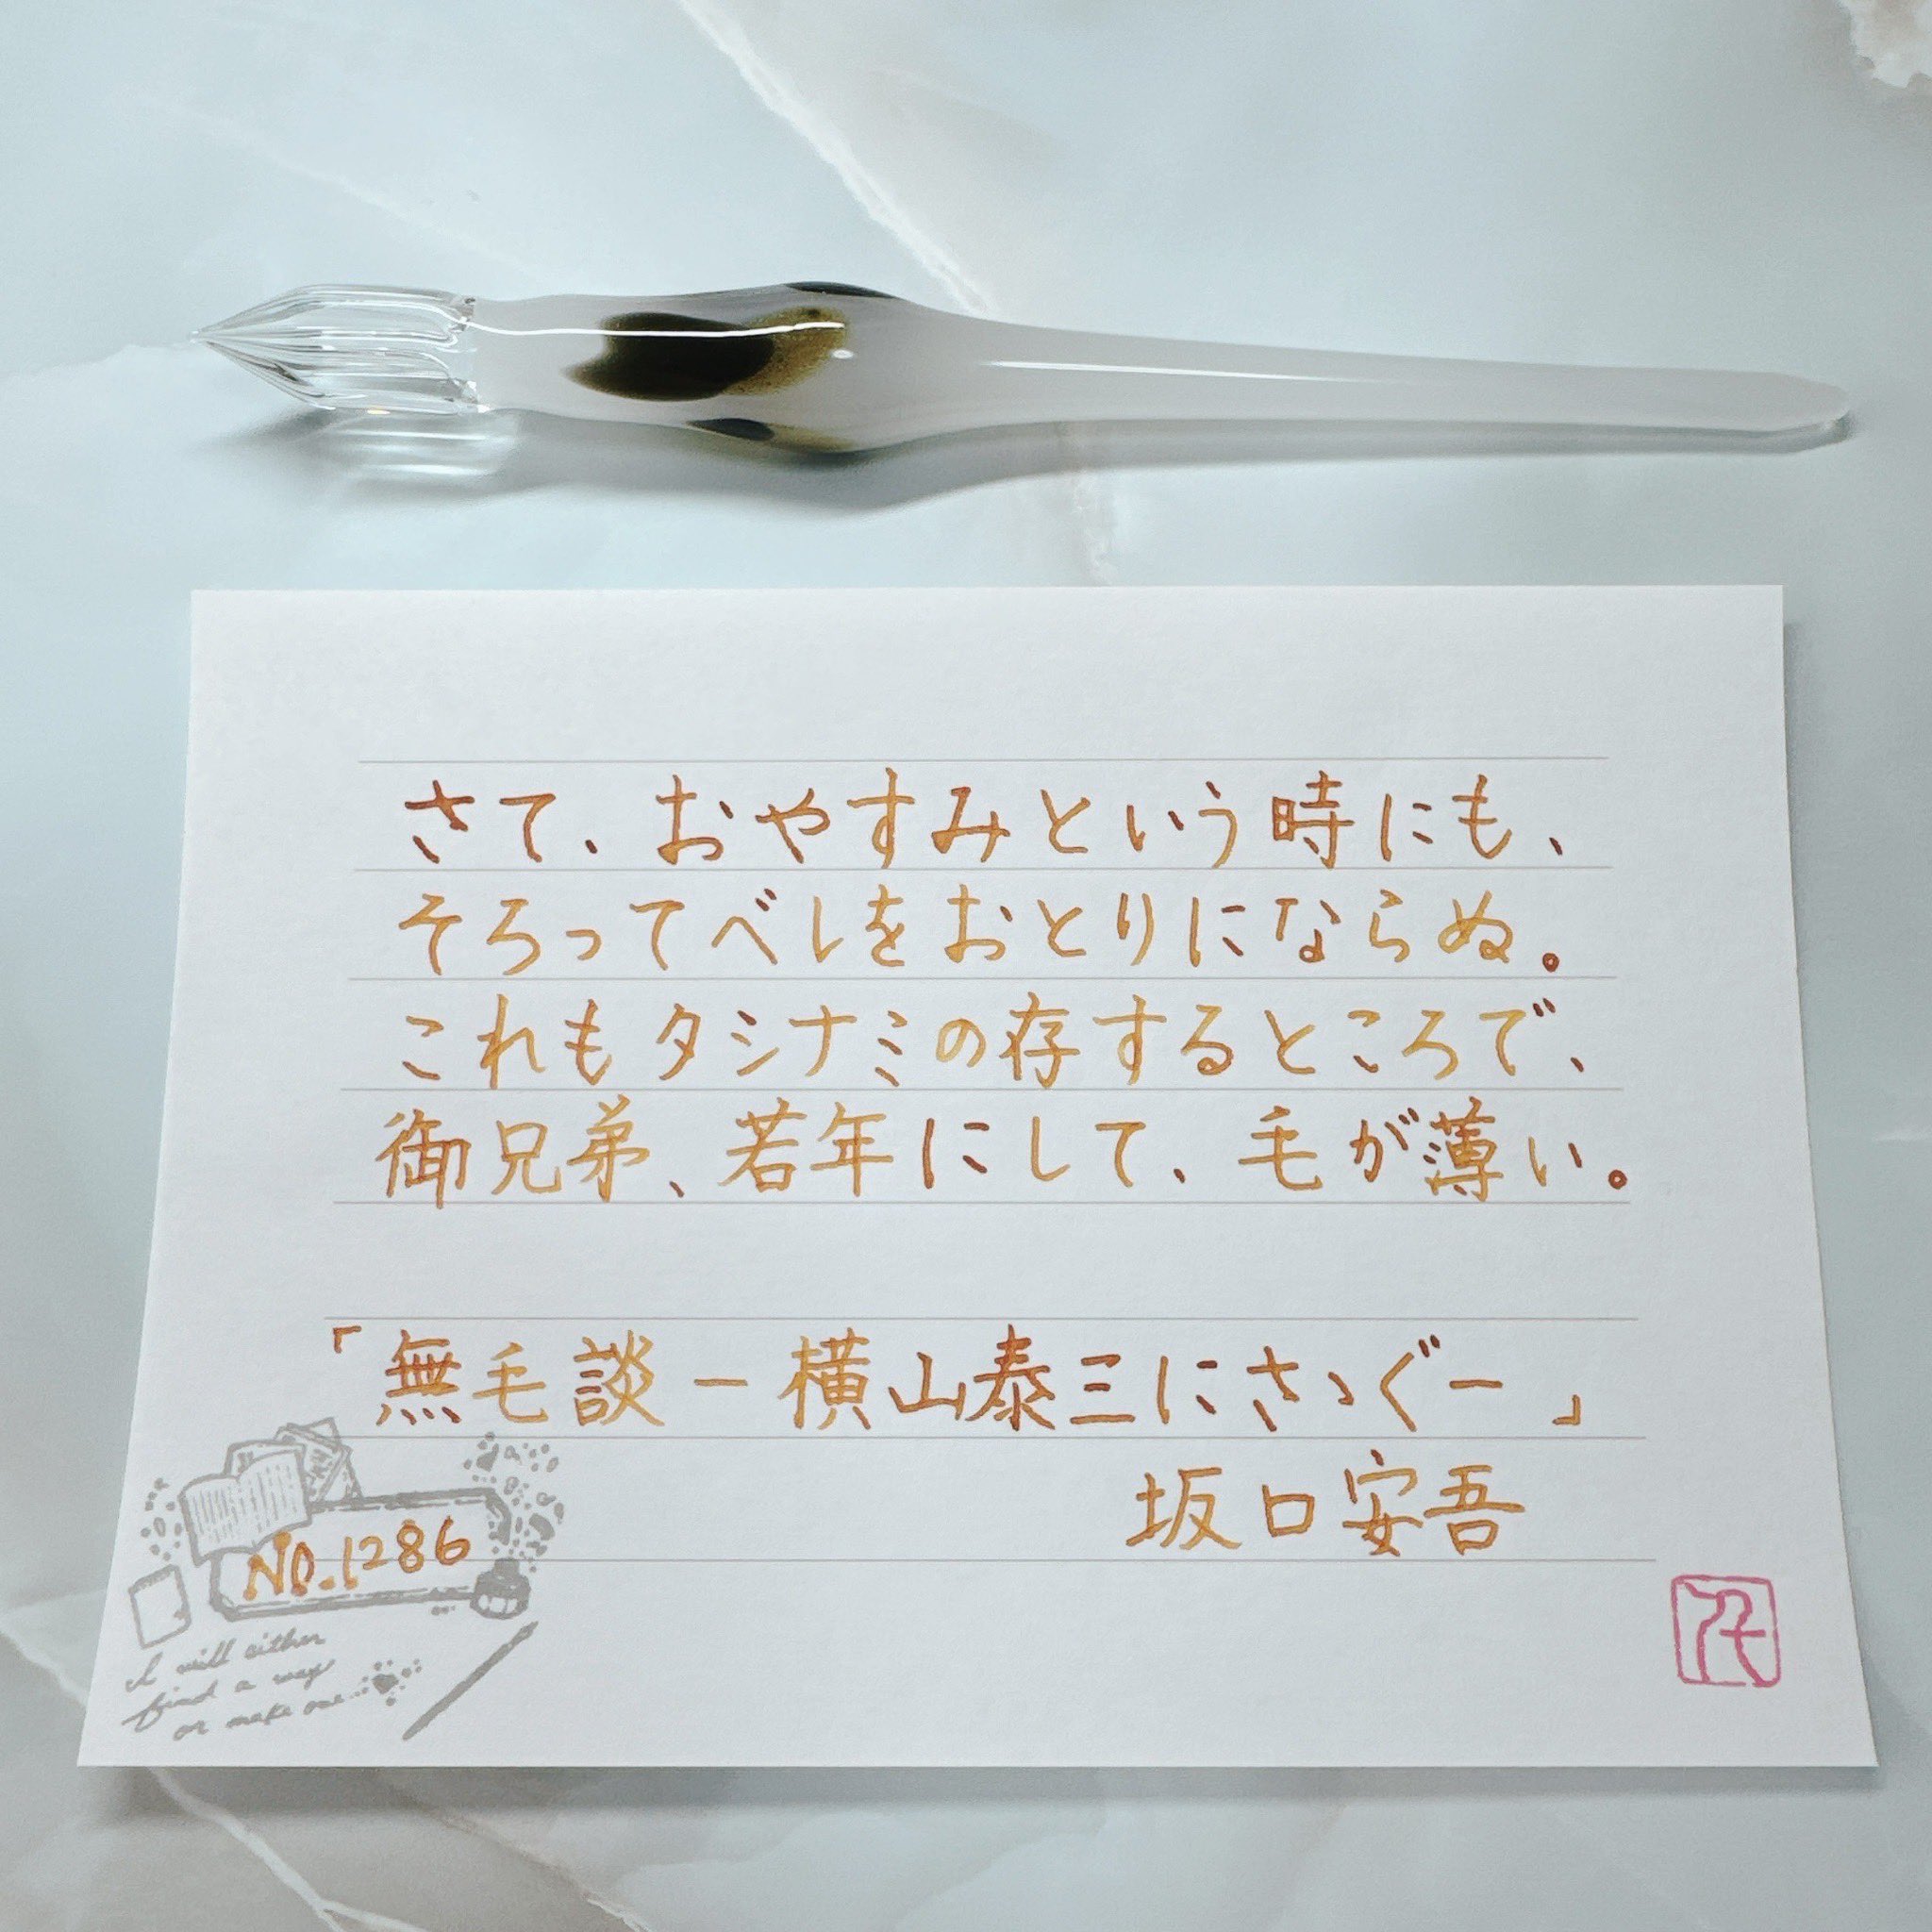 さて、おやすみという時にも、
そろってベレをおとりにならぬ。
これもタシナミの存するところで、
御兄弟、若年にして、毛が薄い。
「無毛談－横山泰三にさゝぐ－」
坂口安吾
NO.1286
I will either
find a way
or make one